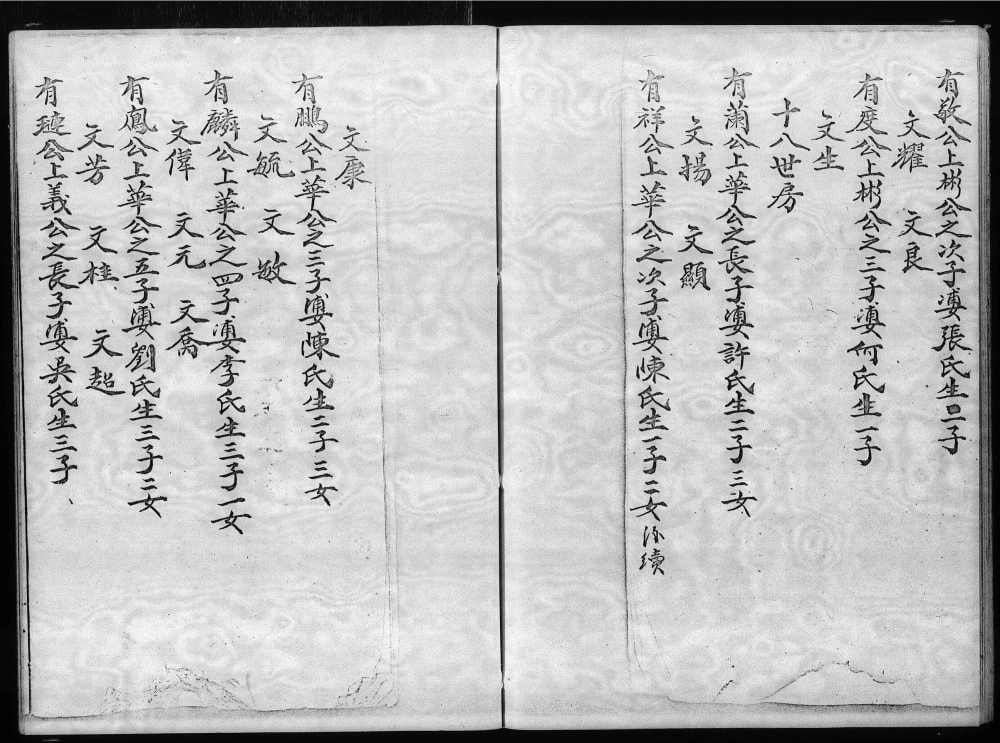 有敬公上彬公之次子婆張氏生二子
文耀 文良
有度公上彬公之三子婆何氏生一子
文生
十八世房
有蘭公上華公之長子婆許氏生二子三女
文揚 文顯
有祥公上華公之次子婆陳氏生一子二女 續
文康
有鵬公上華公之三子婆陳氏生二子三女
文毓 文敏
有麟公上華公之四子婆李氏生三子一女
文偉 文元 文喬
有鳳公上華公之五子婆劉氏生三子二女
文芳 文桂 文超
有璉公上義公之長子婆吳氏生三子、